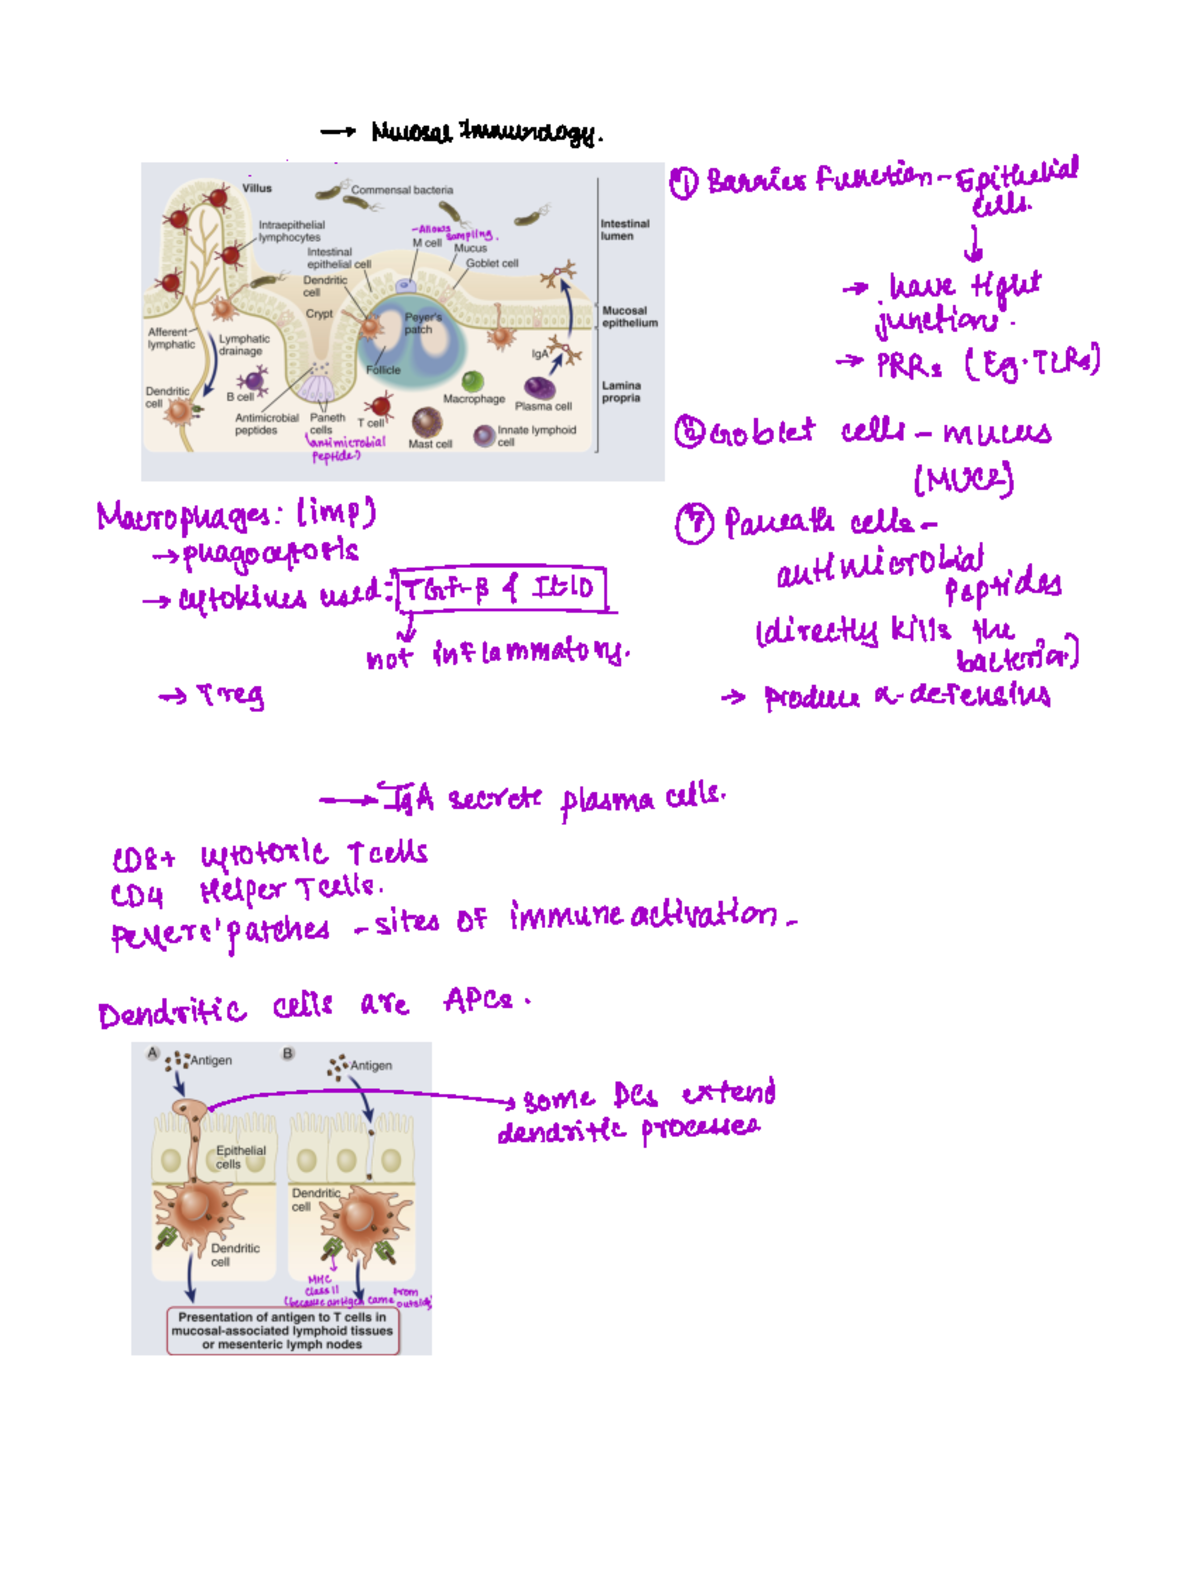 → Mucosal Immunology.
Villus
Commensal bacteria
Intraepithelial
lymphocytes
Intestinal
epithelial cell
Dendritic
cell
Crypt
- Allows
sampling.
M cell
Mucus
Goblet cell
Intestinal
lumen
Mucosal
epithelium
Lamina
propria
Peyer's
patch
Follicle
IgA
Afferent
lymphatic
Lymphatic
drainage
Dendritic
cell
B cell
Antimicrobial
peptides
Paneth
cells
(antimicrobial
peptide)
T cell
Macrophage
Mast cell
Plasma cell
Innate lymphoid
cell
① Barrier Function - Epithelial
cells.
→ have tight
junctions.
→ PRRs (Eg. TLRs)
Goblet cells - mucus
(MUC2)
Paneath cells -
antimicrobial
peptides
(directly kills the
bacteria)
→ Produce α-defensins
Macrophages: (imp)
→ phagocytosis
→ cytokines used: TGF-β & IL10
not inflammatory.
→ Treg
→ IgA secrete plasma cells.
CD8+ cytotoxic T cells
CD4 Helper T cells.
Peyers' patches - sites of immune activation -
Dendritic cells are APCs.
A
Antigen
B
Antigen
→ some DCs extend
dendritic processes
Epithelial
cells
Dendritic
cell
Dendritic
cell
MHC
class II
(because antigen came from
outside)
Presentation of antigen to T cells in
mucosal-associated lymphoid tissues
or mesenteric lymph nodes